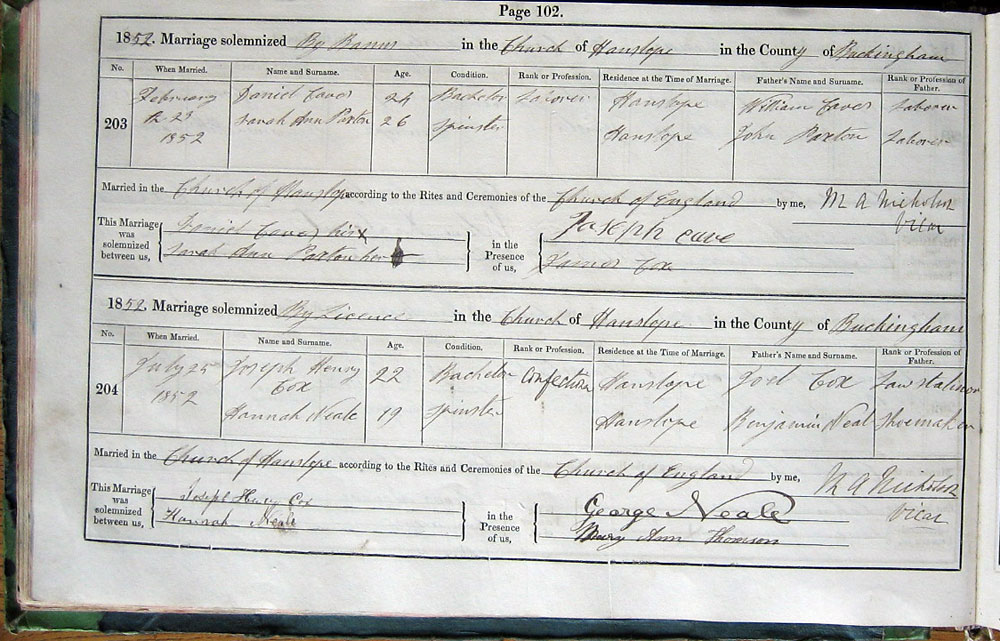 Page 102.
1852. Marriage solemnized By Banns in the Church of Hanslope in the County of Buckingham
No. When Married. Name and Surname. Age. Condition. Rank or Profession. Residence at the Time of Marriage. Father's Name and Surname. Rank or Profession of Father.
203 February 23 1852
Daniel Caves 24 Bachelor Laborer Hanslope William Caves Laborer
Sarah Ann Paxton 26 Spinster Hanslope John Paxton Laborer
Married in the Church of Hanslope according to the Rites and Ceremonies of the Church of England by me, M A Nicholson
Vicar
This Marriage was solemnized between us, Daniel Caves his X
Sarah Ann Paxton her
in the Presence of us, Joseph cave
James Cox
1852. Marriage solemnized By Licence in the Church of Hanslope in the County of Buckingham
No. When Married. Name and Surname. Age. Condition. Rank or Profession. Residence at the Time of Marriage. Father's Name and Surname. Rank or Profession of Father.
204 July 25 1852
Joseph Henry Cox 22 Bachelor Confection Hanslope Joel Cox Law stationer
Hannah Neale 19 Spinster Hanslope Benjamin Neal Shoemaker
Married in the Church of Hanslope according to the Rites and Ceremonies of the Church of England by me, M A Nicholson
Vicar
This Marriage was solemnized between us, Joseph Henry Cox
Hannah Neale
in the Presence of us, George Neale
Mary Ann Thomson